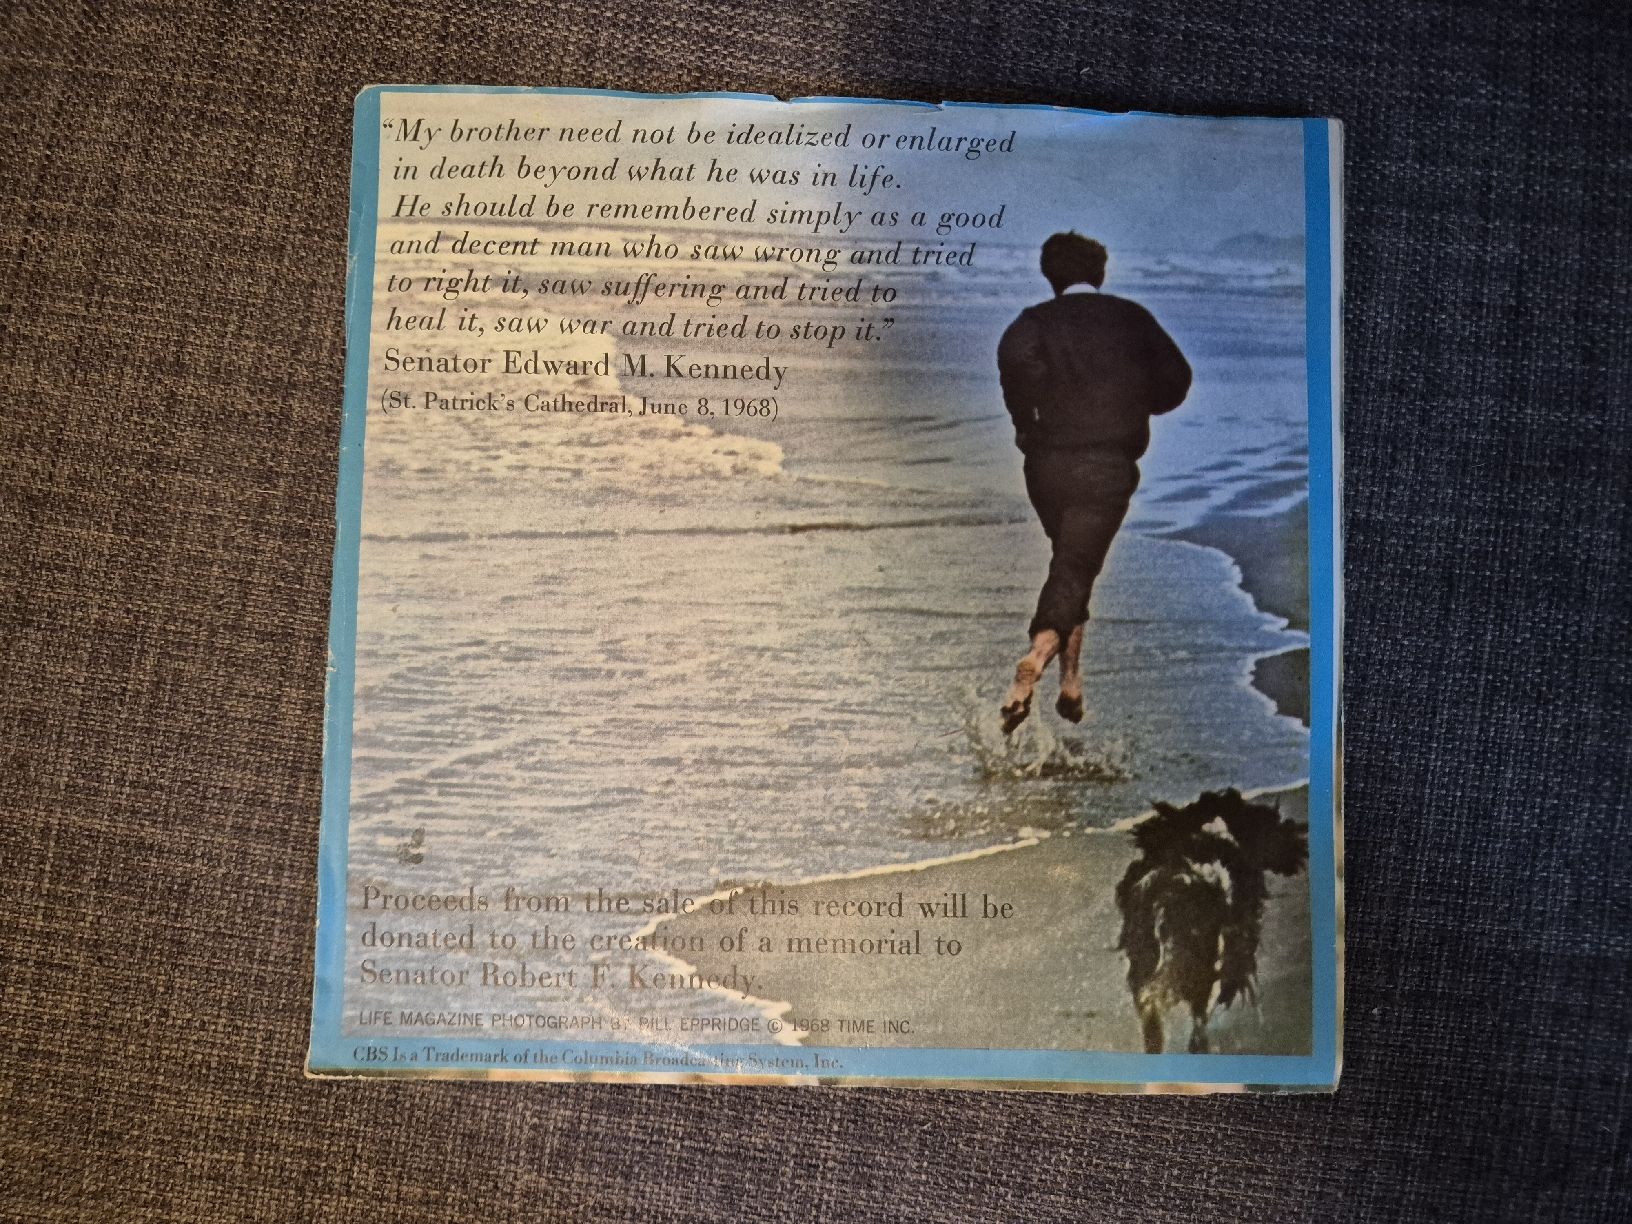 “My brother need not be idealized or enlarged
in death beyond what he was in life.
He should be remembered simply as a good
and decent man who saw wrong and tried
to right it, saw suffering and tried to
heal it, saw war and tried to stop it.”
Senator Edward M. Kennedy
(St. Patrick's Cathedral, June 8, 1968)
Proceeds from the sale of this record will be
donated to the creation of a memorial to
Senator Robert F. Kennedy.
LIFE MAGAZINE PHOTOGRAPH BY BILL EPPRIDGE © 1968 TIME INC.
CBS Is a Trademark of the Columbia Broadcasting System, Inc.